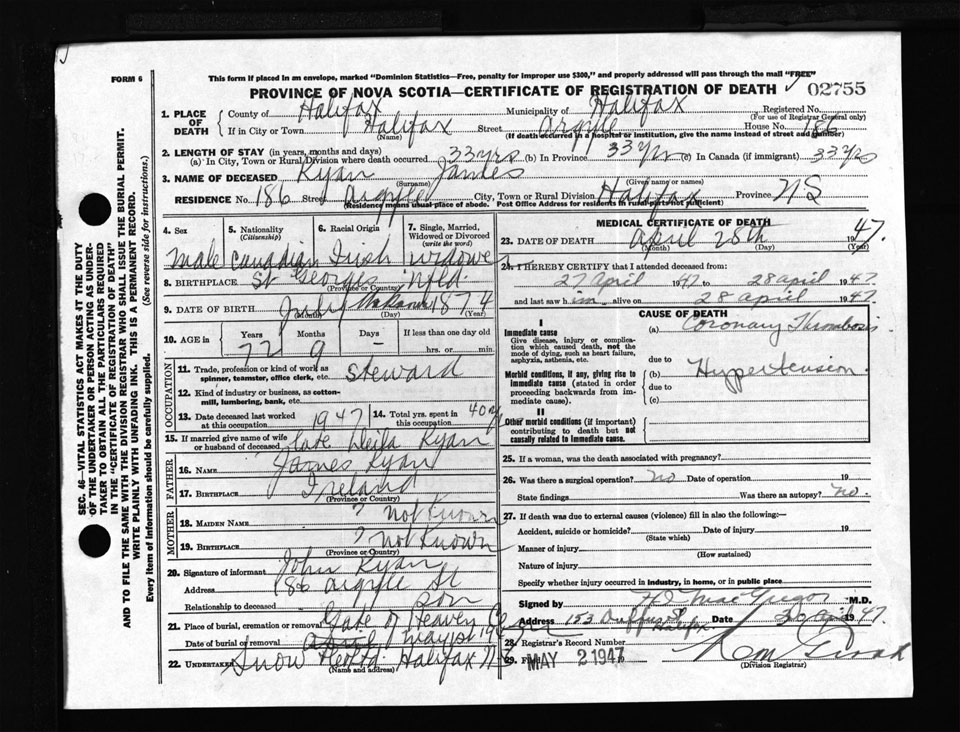 FORM 6
This form if placed in an envelope, marked "Dominion Statistics—Free, penalty for improper use $300," and properly addressed will pass through the mail "FREE"
PROVINCE OF NOVA SCOTIA—CERTIFICATE OF REGISTRATION OF DEATH
02755
1. PLACE OF DEATH
County of Halifax Municipality of Halifax Registered No.
(For use of Registrar General only)
If in City or Town Halifax Street Argyle House No. 186
(Name) (If death occurred in a hospital or institution, give the name instead of street and number)
2. LENGTH OF STAY (in years, months and days)
(a) In City, Town or Rural Division where death occurred 33 yrs (b) In Province 33 Yrs (c) In Canada (if immigrant) 33 Yrs
3. NAME OF DECEASED Ryan James
(Surname) (Given name or names)
RESIDENCE No. 186 Street Argyle City, Town or Rural Division Halifax Province N S
(Residence means usual place of abode. Post Office Address for residents in rural parts not sufficient)
4. Sex 5. Nationality (Citizenship) 6. Racial Origin 7. Single, Married, Widowed or Divorced (write the word)
male Canadian Irish widower
8. BIRTHPLACE St Georges Nfld.
(Province or Country)
9. DATE OF BIRTH July 1874
(Month) (Day) (Year)
10. AGE in Years Months Days If less than one day old
72 9 - hrs. or min.
OCCUPATION
11. Trade, profession or kind of work as spinner, teamster, office clerk, etc. Steward
12. Kind of industry or business, as cotton-mill, lumbering, bank, etc.
13. Date deceased last worked at this occupation 1947 14. Total yrs. spent in this occupation 40 y
15. If married give name of wife or husband of deceased Late Ryan
FATHER
16. Name James Ryan
17. Birthplace Ireland
(Province or Country)
MOTHER
18. Maiden Name ? not Known
19. Birthplace ? not Known
(Province or Country)
20. Signature of informant John Ryan
Address 186 Argyle St
Relationship to deceased son
21. Place of burial, cremation or removal Gate of Heaven Cem
Date of burial or removal April May 1st 194
22. Undertaker Snow Halifax N.S.
(Name and address)
MEDICAL CERTIFICATE OF DEATH
23. DATE OF DEATH April 28th 1947.
(Month) (Day) (Year)
24. I HEREBY CERTIFY that I attended deceased from:
27 April 1947 to 28 April 1947.
and last saw h im alive on 28 April 1947.
CAUSE OF DEATH
I
Immediate cause
Give disease, injury or complication which caused death, not the mode of dying, such as heart failure, asphyxia, asthenia, etc.
(a) Coronary Thrombosis
due to
Morbid conditions, if any, giving rise to immediate cause (stated in order proceeding backwards from immediate cause).
(b) Hypertension
due to
(c)
II
Other morbid conditions (if important) contributing to death but not causally related to immediate cause.
25. If a woman, was the death associated with pregnancy?
26. Was there a surgical operation? no Date of operation 19
State findings Was there an autopsy? no.
27. If death was due to external causes (violence) fill in also the following:—
Accident, suicide or homicide? Date of injury 19
(State which)
Manner of injury
(How sustained)
Nature of injury
Specify whether injury occurred in industry, in home, or in public place
Signed by H. D. MacGregor M.D.
Address 153 Halifax Date 30 April 1947.
28. Registrar's Record Number
29. Filed MAY 2 1947
(Division Registrar)
SEC. 46—VITAL STATISTICS ACT MAKES IT THE DUTY
OF THE UNDERTAKER OR PERSON ACTING AS UNDER-
TAKER TO OBTAIN ALL THE PARTICULARS REQUIRED
IN THE "CERTIFICATE OF REGISTRATION OF DEATH"
AND TO FILE THE SAME WITH THE DIVISION REGISTRAR WHO SHALL ISSUE THE BURIAL PERMIT.
WRITE PLAINLY WITH UNFADING INK. THIS IS A PERMANENT RECORD.
Every item of information should be carefully supplied. (See reverse side for instructions.)